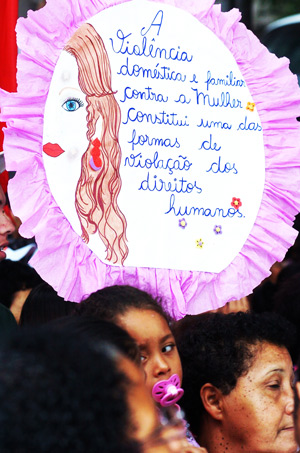 A
Violência
doméstica e familiar
contra a Mulher
constitui uma das
formas de
violação dos
direitos
humanos.